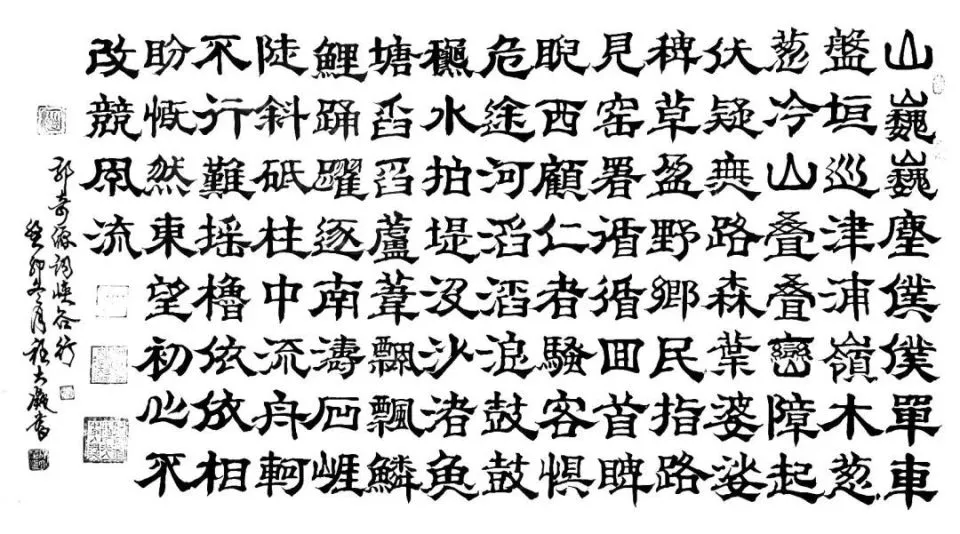 山巍巍塵僕僕單車
盤垣巡津浦嶺木葱
葱冷山叠叠巒障起
伏疑無路森葉婆娑
稗草盈野鄉民指路
見窑署遁循回首睥
睨西顧仁者騷客惧
危途河滔滔浪鼓鼓
穩水拍堤没沙渚魚
塘舀舀蘆葦飄飄鱗
鯉踊躍逐南濤崕
陡斜砥柱中流舟軻
不行難摇櫓依依相
盼慨然東望初心不
改競風流
奇源詞峽谷行
癸卯冬月程大書